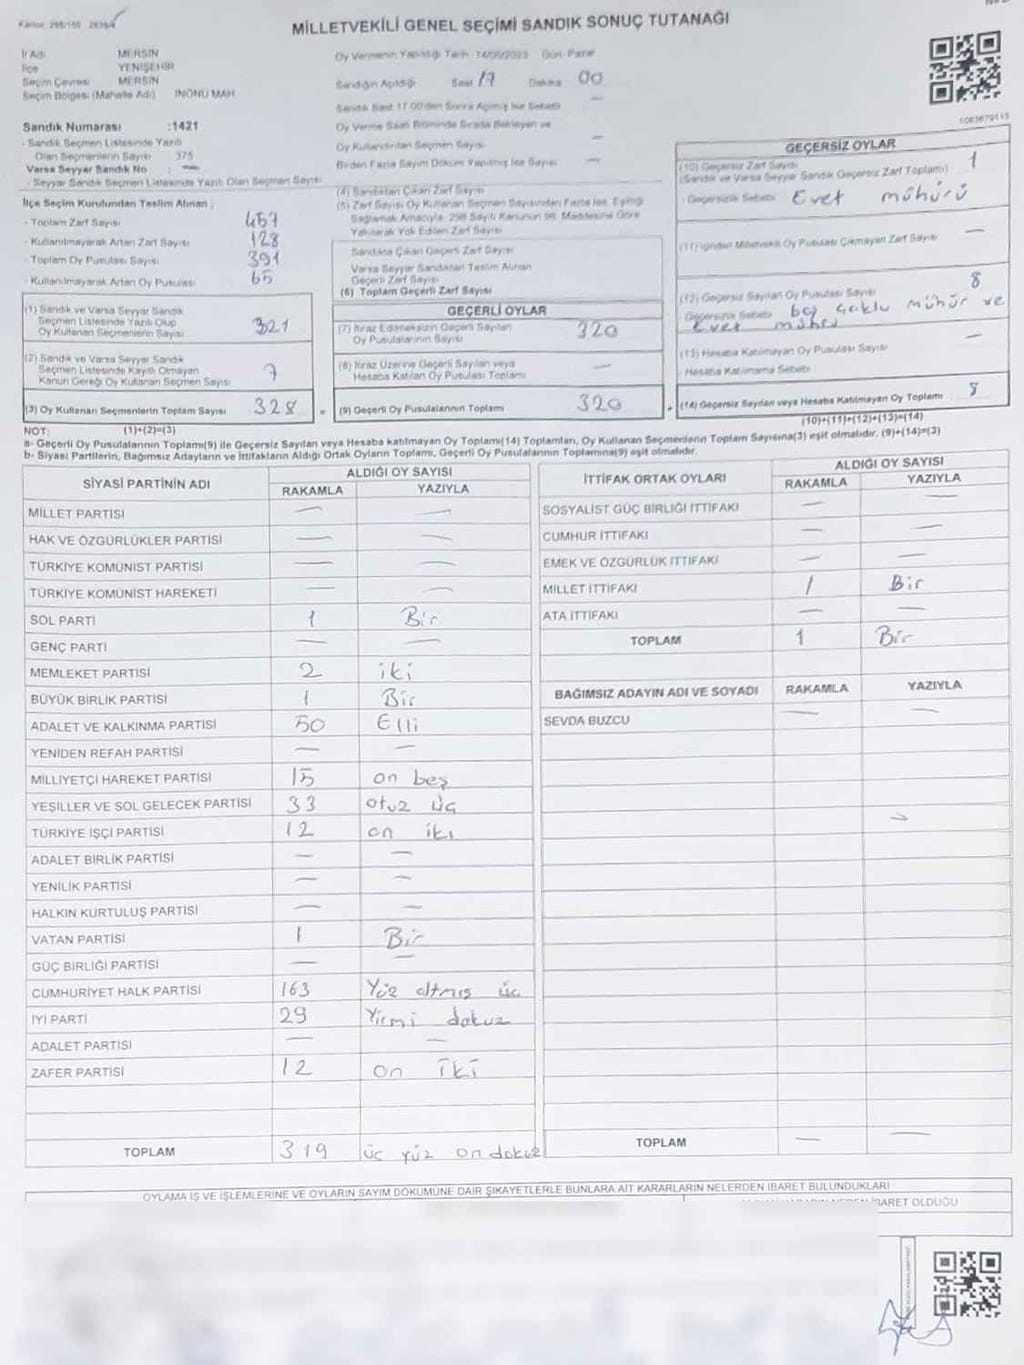 MİLLETVEKİLİ GENEL SEÇİMİ SANDIK SONUÇ TUTANAĞI
İl Adı : MERSİN
İlçe : YENİŞEHİR
Seçim Çevresi : MERSİN
Seçim Bölgesi (Mahalle Adı) İNÖNÜ MAH.
Sandık Numarası :1421
- Sandık Seçmen Listesinde Yazılı
Olan Seçmenlerin Sayısı 375
Varsa Seyyar Sandık No : —
- Seyyar Sandık Seçmen Listesinde Yazılı Olan Seçmen Sayısı
İlçe Seçim Kurulundan Teslim Alınan ;
- Toplam Zarf Sayısı 457
- Kullanılmayarak Artan Zarf Sayısı 128
- Toplam Oy Pusulası Sayısı 391
- Kullanılmayarak Artan Oy Pusulası 65
(1) Sandık ve Varsa Seyyar Sandık
Seçmen Listesinde Yazılı Olup
Oy Kullanan Seçmenlerin Sayısı 321
(2) Sandık ve Varsa Seyyar Sandık
Seçmen Listesinde Kayıtlı Olmayan
Kanun Gereği Oy Kullanan Seçmen Sayısı 7
(3) Oy Kullanan Seçmenlerin Toplam Sayısı 328 =
Oy Vermenin Yapıldığı Tarih: 14/05/2023 Gün: Pazar
Sandığın Açıldığı Saat 17 Dakika 00
Sandık Saat 17.00'den Sonra Açılmış İse Sebebi —
Oy Verme Saati Bitiminde Sırada Bekleyen ve
Oy Kullandırılan Seçmen Sayısı —
Birden Fazla Sayım Döküm Yapılmış İse Sayısı —
(4) Sandıktan Çıkan Zarf Sayısı
(5) Zarf Sayısı Oy Kullanan Seçmen Sayısından Fazla İse, Eşitliği
Sağlamak Amacıyla, 298 Sayılı Kanunun 98. Maddesine Göre
Yakılarak Yok Edilen Zarf Sayısı
Sandıkta Çıkan Geçerli Zarf Sayısı
Varsa Seyyar Sandıktan Teslim Alınan
Geçerli Zarf Sayısı
(6) Toplam Geçerli Zarf Sayısı
GEÇERLİ OYLAR
(7) İtiraz Edilmeksizin Geçerli Sayılan
Oy Pusulalarının Sayısı 320
(8) İtiraz Üzerine Geçerli Sayılan veya
Hesaba Katılan Oy Pusulası Toplamı —
(9) Geçerli Oy Pusulalarının Toplamı 320 +
1083679113
GEÇERSİZ OYLAR
(10) Geçersiz Zarf Sayısı 1
(Sandık ve Varsa Seyyar Sandık Geçersiz Zarf Toplamı)
- Geçersizlik Sebebi Evet mühürü
(11) İçinden Milletvekili Oy Pusulası Çıkmayan Zarf Sayısı —
(12) Geçersiz Sayılan Oy Pusulası Sayısı 8
- Geçersizlik Sebebi boş çoklu mühür ve
Evet
(13) Hesaba Katılmayan Oy Pusulası Sayısı —
- Hesaba Katılmama Sebebi
(14) Geçersiz Sayılan veya Hesaba Katılmayan Oy Toplamı 8
NOT: (1)+(2)=(3) (10)+(11)+(12)+(13)=(14)
a- Geçerli Oy Pusulalarının Toplamı(9) ile Geçersiz Sayılan veya Hesaba katılmayan Oy Toplamı(14) Toplamları, Oy Kullanan Seçmenlerin Toplam Sayısına(3) eşit olmalıdır. (9)+(14)=(3)
b- Siyasi Partilerin, Bağımsız Adayların ve İttifakların Aldığı Ortak Oyların Toplamı, Geçerli Oy Pusulalarının Toplamına(9) eşit olmalıdır.
SİYASİ PARTİNİN ADI ALDIĞI OY SAYISI
RAKAMLA YAZIYLA
MİLLET PARTİSİ — —
HAK VE ÖZGÜRLÜKLER PARTİSİ — —
TÜRKİYE KOMÜNİST PARTİSİ — —
TÜRKİYE KOMÜNİST HAREKETİ — —
SOL PARTİ 1 Bir
GENÇ PARTİ — —
MEMLEKET PARTİSİ 2 iki
BÜYÜK BİRLİK PARTİSİ 1 Bir
ADALET VE KALKINMA PARTİSİ 50 Elli
YENİDEN REFAH PARTİSİ — —
MİLLİYETÇİ HAREKET PARTİSİ 15 on beş
YEŞİLLER VE SOL GELECEK PARTİSİ 33 otuz üç
TÜRKİYE İŞÇİ PARTİSİ 12 on iki
ADALET BİRLİK PARTİSİ — —
YENİLİK PARTİSİ — —
HALKIN KURTULUŞ PARTİSİ — —
VATAN PARTİSİ 1 Bir
GÜÇ BİRLİĞİ PARTİSİ — —
CUMHURİYET HALK PARTİSİ 163 Yüz altmış üç
İYİ PARTİ 29 Yirmi dokuz
ADALET PARTİSİ — —
ZAFER PARTİSİ 12 on iki
TOPLAM 319 üç yüz on dokuz
İTTİFAK ORTAK OYLARI ALDIĞI OY SAYISI
RAKAMLA YAZIYLA
SOSYALİST GÜÇ BİRLİĞİ İTTİFAKI — —
CUMHUR İTTİFAKI — —
EMEK VE ÖZGÜRLÜK İTTİFAKI — —
MİLLET İTTİFAKI 1 Bir
ATA İTTİFAKI — —
TOPLAM 1 Bir
BAĞIMSIZ ADAYIN ADI VE SOYADI RAKAMLA YAZIYLA
SEVDA BUZCU — —
TOPLAM — —
OYLAMA İŞ VE İŞLEMLERİNE VE OYLARIN SAYIM DÖKÜMÜNE DAİR ŞİKAYETLERLE BUNLARA AİT KARARLARIN NELERDEN İBARET BULUNDUKLARI
İBARET OLDUĞU